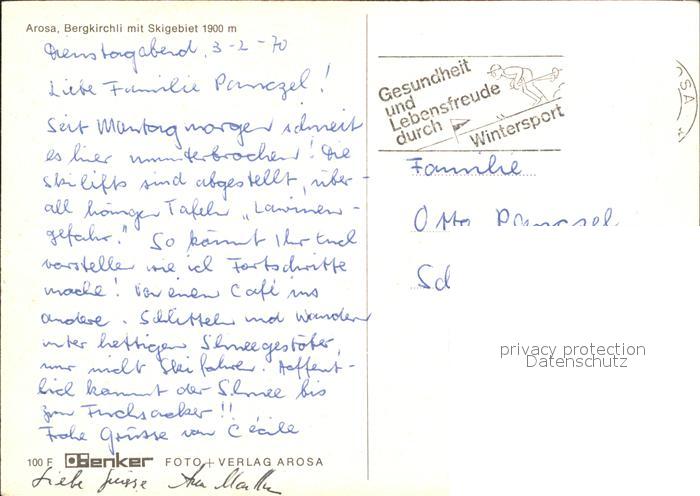 Arosa, Bergkirchli mit Skigebiet 1900 m
Dienstagabend, 3-2-70
Liebe Familie
Seit Montag morgen schneit
es hier ununterbrochen! Die
Skilifts sind abgestellt, über-
all hängen Tafeln „Lawinen-
gefahr." So könnt Ihr Euch
vorstellen wie ich Fortschritte
mache! Von einen Café ins
andere. Schlitteln und Wandern
unter heftigen Schneegestöber,
nur nicht Skifahren. Hoffent-
lich kommt der Schnee bis
zum Fuchsacker!!
Frohe Grüsse von Cécile
100 F Denker FOTO + VERLAG AROSA
Liebe Grüsse
Gesundheit
und
Lebensfreude
durch
Wintersport
SA
Familie
Otto
privacy protection
Datenschutz